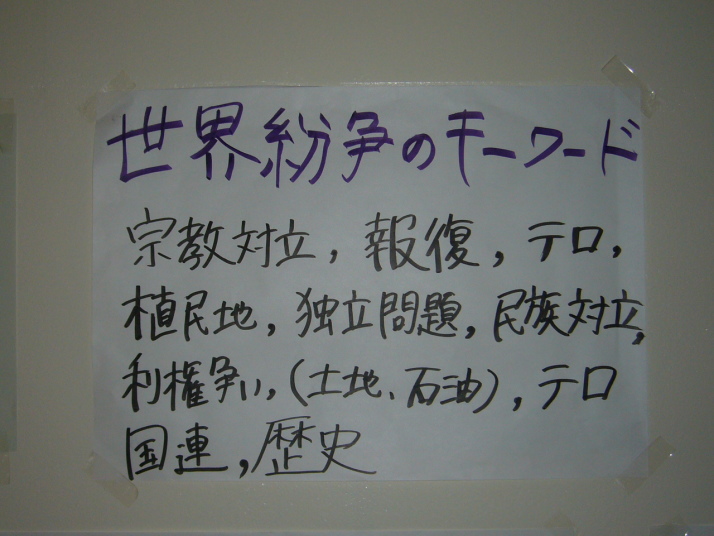 世界紛争のキーワード
宗教対立，報復，テロ，
植民地，独立問題，民族対立，
利権争い，(土地、石油)，テロ
国連，歴史